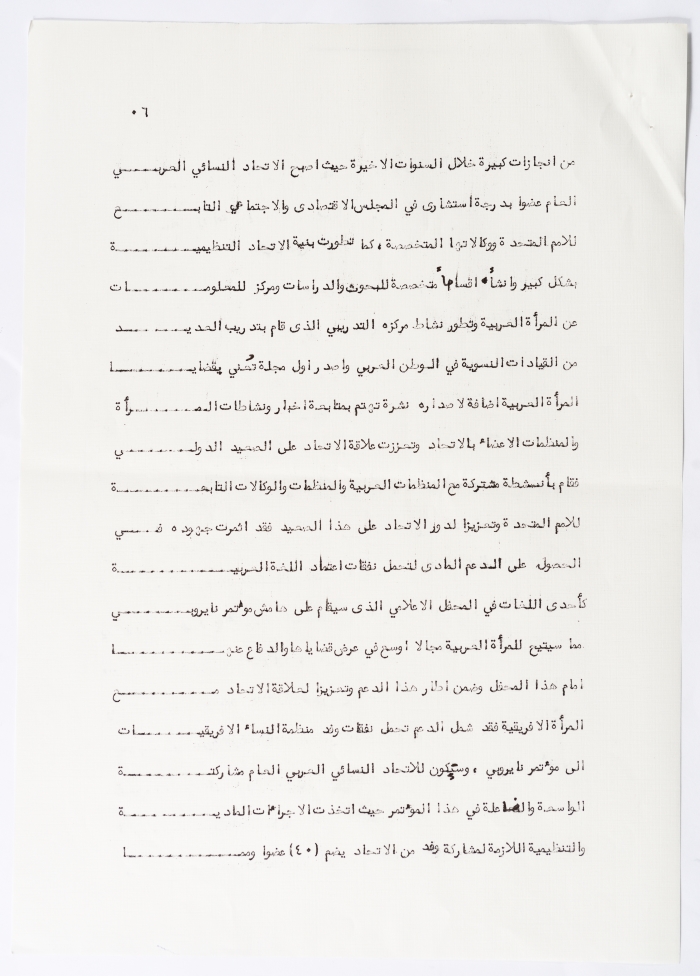 ٠٦
من انجازات كبيرة خلال السنوات الاخيرة حيث اصبح الاتحاد النسائي العربي
العام عضوا بدرجة استشارى في المجلس الاقتصادى والاجتماعي التابع
للامم المتحدة ووكالاتها المتخصصة ، كما تطورت بنية الاتحاد التنظيمية
بشكل كبير وانشأ اقساماً متخصصة للبحوث والدراسات ومركز للمعلومات
عن المرأة العربية وتطور نشاط مركزه التدريبي الذى قام بتدريب العديد
من القيادات النسوية في الوطن العربي واصدر اول مجلة تُعني بقضايا
المرأة العربية اضافة لاصداره نشرة تهتم بمتابعة اخبار ونشاطات المرأة
والمنظمات الاعضاء بالاتحاد وتعززت علاقة الاتحاد على الصعيد الدولي
فقام بأنسشطة مشتركة مع المنظمات العربية والمنظمات والوكالات التابعة
للامم المتحدة وتعزيزا لدور الاتحاد على هذا الصعيد فقد اثمرت جهوده في
الحصول على الدعم المادى لتحمل نفقات اعتماد اللغة العربية
كأحدى اللغات في المحفل الاعلامي الذى سيقام على هامش مؤتمر نايروبي
مما سيتيح للمرأة العربية مجالا اوسع في عرض قضاياها والدفاع عنها
امام هذا المحفل وضمن اطار هذا الدعم وتعزيزا لعلاقة الاتحاد مع
المرأة الافريقية فقد شمل الدعم تحمل نفقات وفد منظمة النساء الافريقيات
الى مؤتمر نايروبي ، وسيكون للاتحاد النسائي العربي العام مشاركته
الواسعة والفاعلة في هذا المؤتمر حيث اتخذت الاجراءات المادية
والتنظيمية اللازمة لمشاركة وفد من الاتحاد يضم (٤٠) عضوا ومما